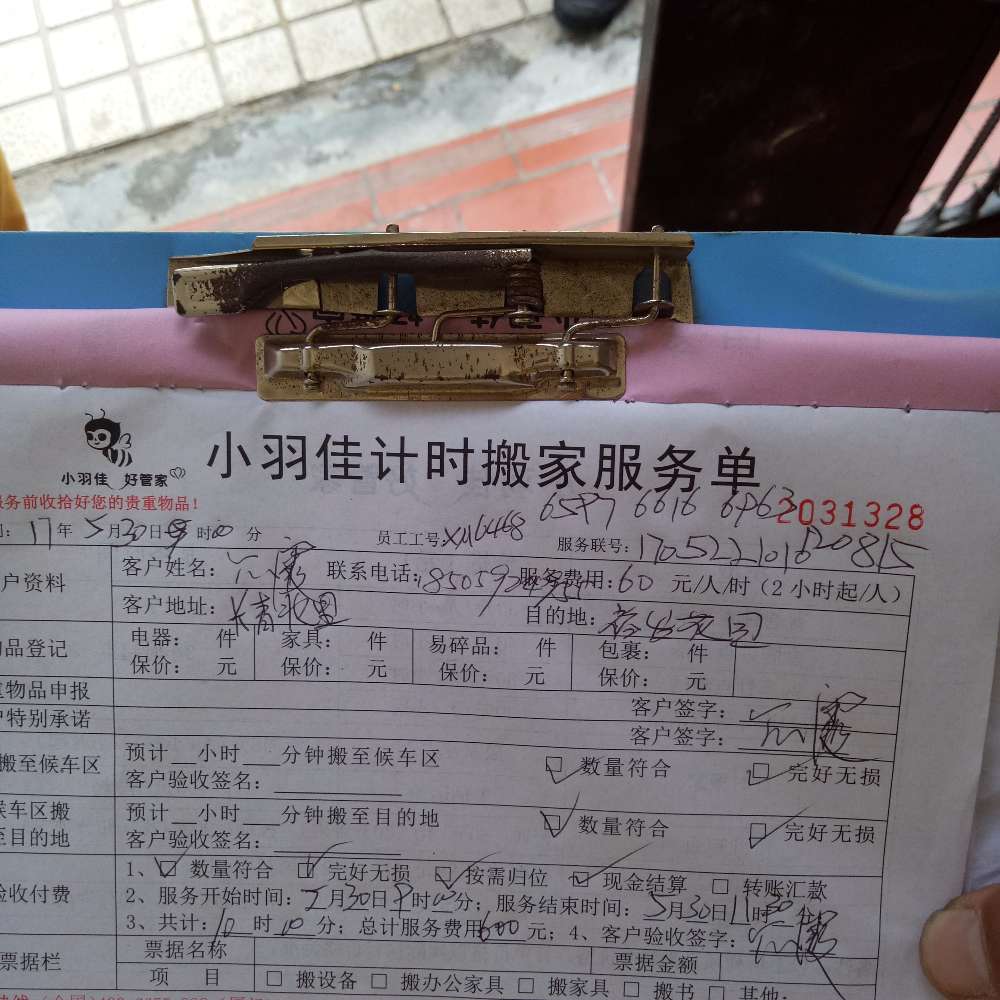 小羽佳 好管家
小羽佳计时搬家服务单
服务前收拾好您的贵重物品!
6577 6616 6963
2031328
17年5月30日 时00分
员工工号:
服务联号:
户资料
客户姓名:
联系电话:
服务费用:60元/人/时(2小时起/人)
客户地址:长青北里
目的地:
品登记
电器: 件 家具: 件 易碎品: 件 包裹: 件
保价: 元 保价: 元 保价: 元 保价: 元
重物品申报
客户签字:
户特别承诺
客户签字:
搬至候车区
预计__小时___分钟搬至候车区
客户验收签名:
数量符合
完好无损
候车区搬至目的地
预计__小时___分钟搬至目的地
客户验收签名:
数量符合
完好无损
验收付费
1、数量符合 完好无损 按需归位 现金结算 转账汇款
2、服务开始时间:5月30日 时00分;服务结束时间:5月30日11时 分
3、共计:10时00分;总计服务费用600元;4、客户验收签字:
票据栏
票据名称
票据金额
项 目
搬设备 搬办公家具 搬家具 搬书 其他: